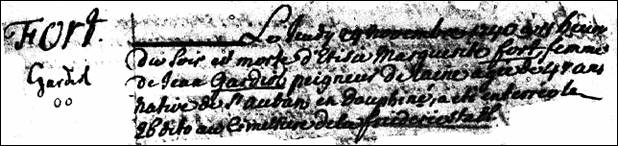 FORT.
Gardiol
Le Jeudy 24 novembre 1740 a 11 heures
du soir est morte d'Etisie Marguerite fort, femme
de Jean Gardiol peigneur de laine agée de 47 ans
native de St auban en Dauphiné, a eté enterrée le
26 dito au Cimetiere de la friderichstatt